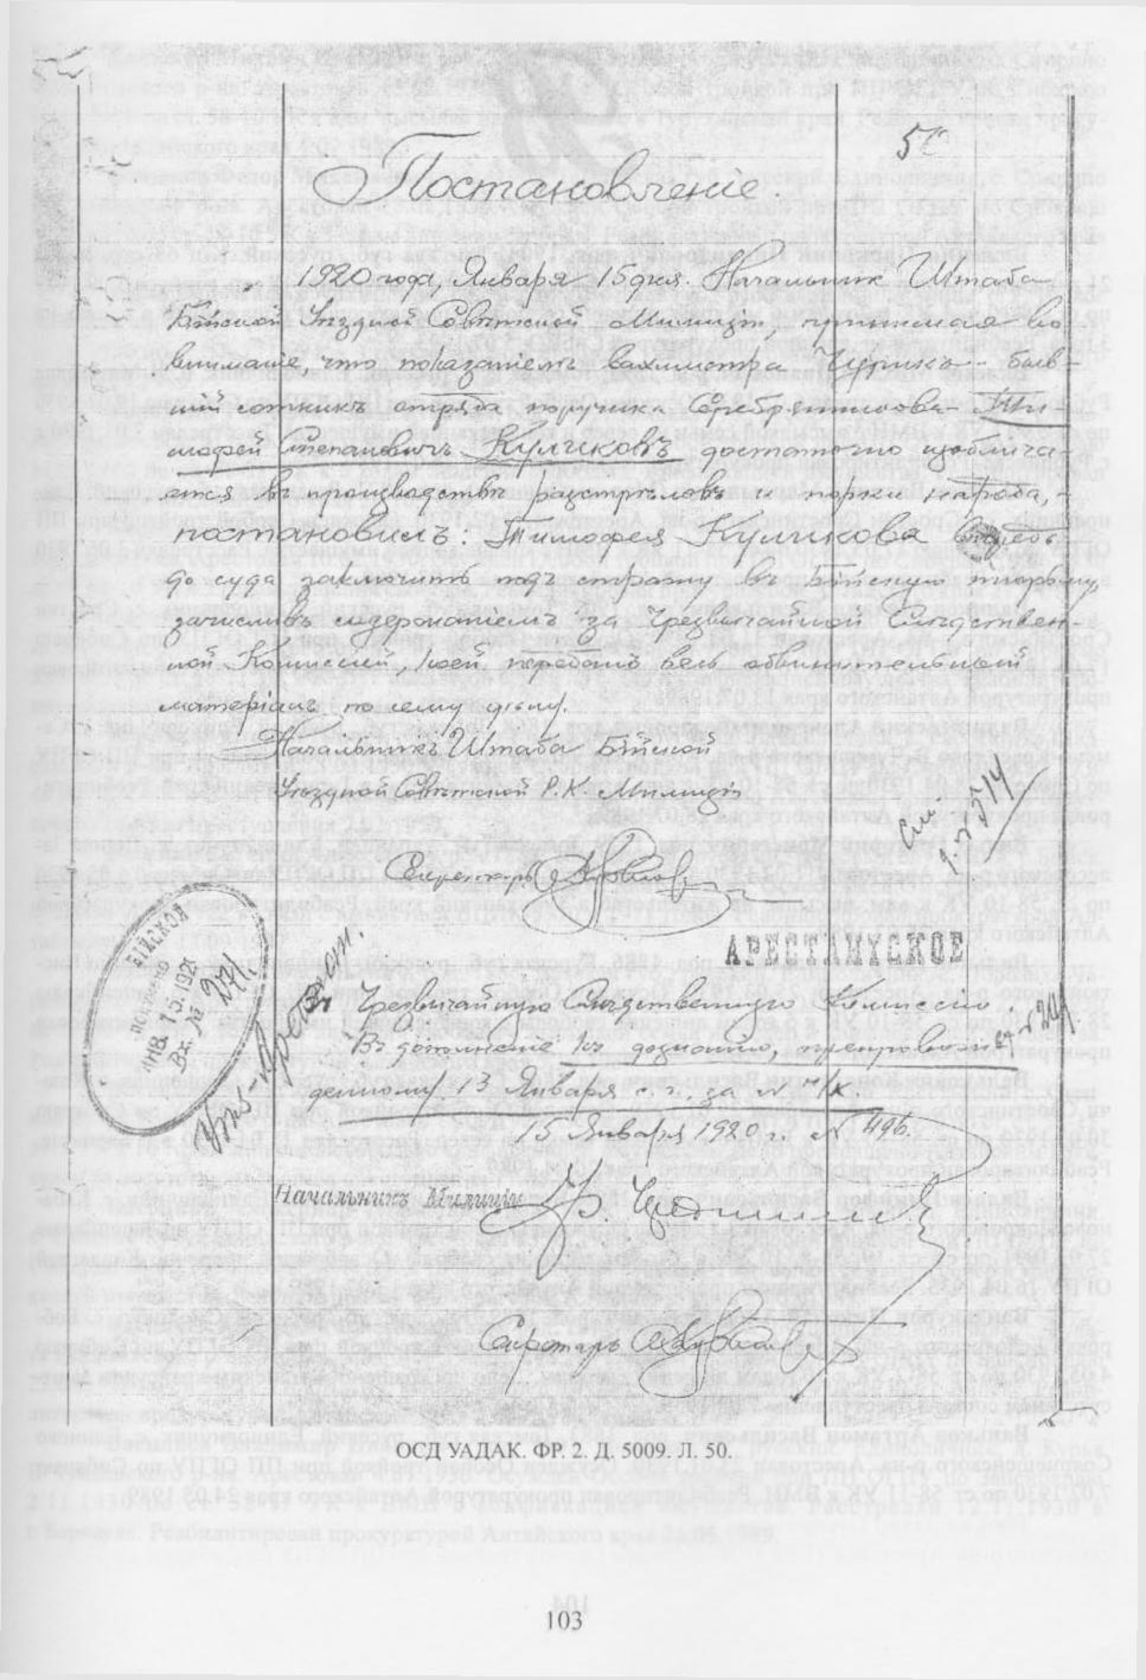 50
Постановленіе.
1920 года, Января 15 дня. Начальник Штаба
Бійской Уездной Советской Милиціи, принимая во
вниманіе, что показаніемъ вахмистра быв-
шій сотникъ отряда поручика Серебренникова Ти-
мофей Степановичъ Куликовъ достаточно изоблича-
ется въ производстве разстреловъ и порки народа,
постановилъ: Тимофея Куликова впредь
до суда заключить подъ стражу въ Бійскую тюрьму,
зачисливъ содержаніемъ за Чрезвычайной Следствен-
ной Комиссией, коей передать весь обвинительный
матеріалъ по сему делу.
Начальникъ Штаба Бійской
Уездной Советской Р.К. Милиціи
Секретарь
См.
АРЕСТАНТСКОЕ
БІЙСКОЙ
ЯНВ. 15. 192
Вх. №
271.
Въ Чрезвычайную Следственную Комиссію
Въ дополненіе къ дознанію, препровож-
денному 13 Января с. г. за № н/к.
15 Января 1920 г. № 496.
Начальникъ Милиціи
Секретарь
ОСД УАДАК. ФР. 2. Д. 5009. Л. 50.
103